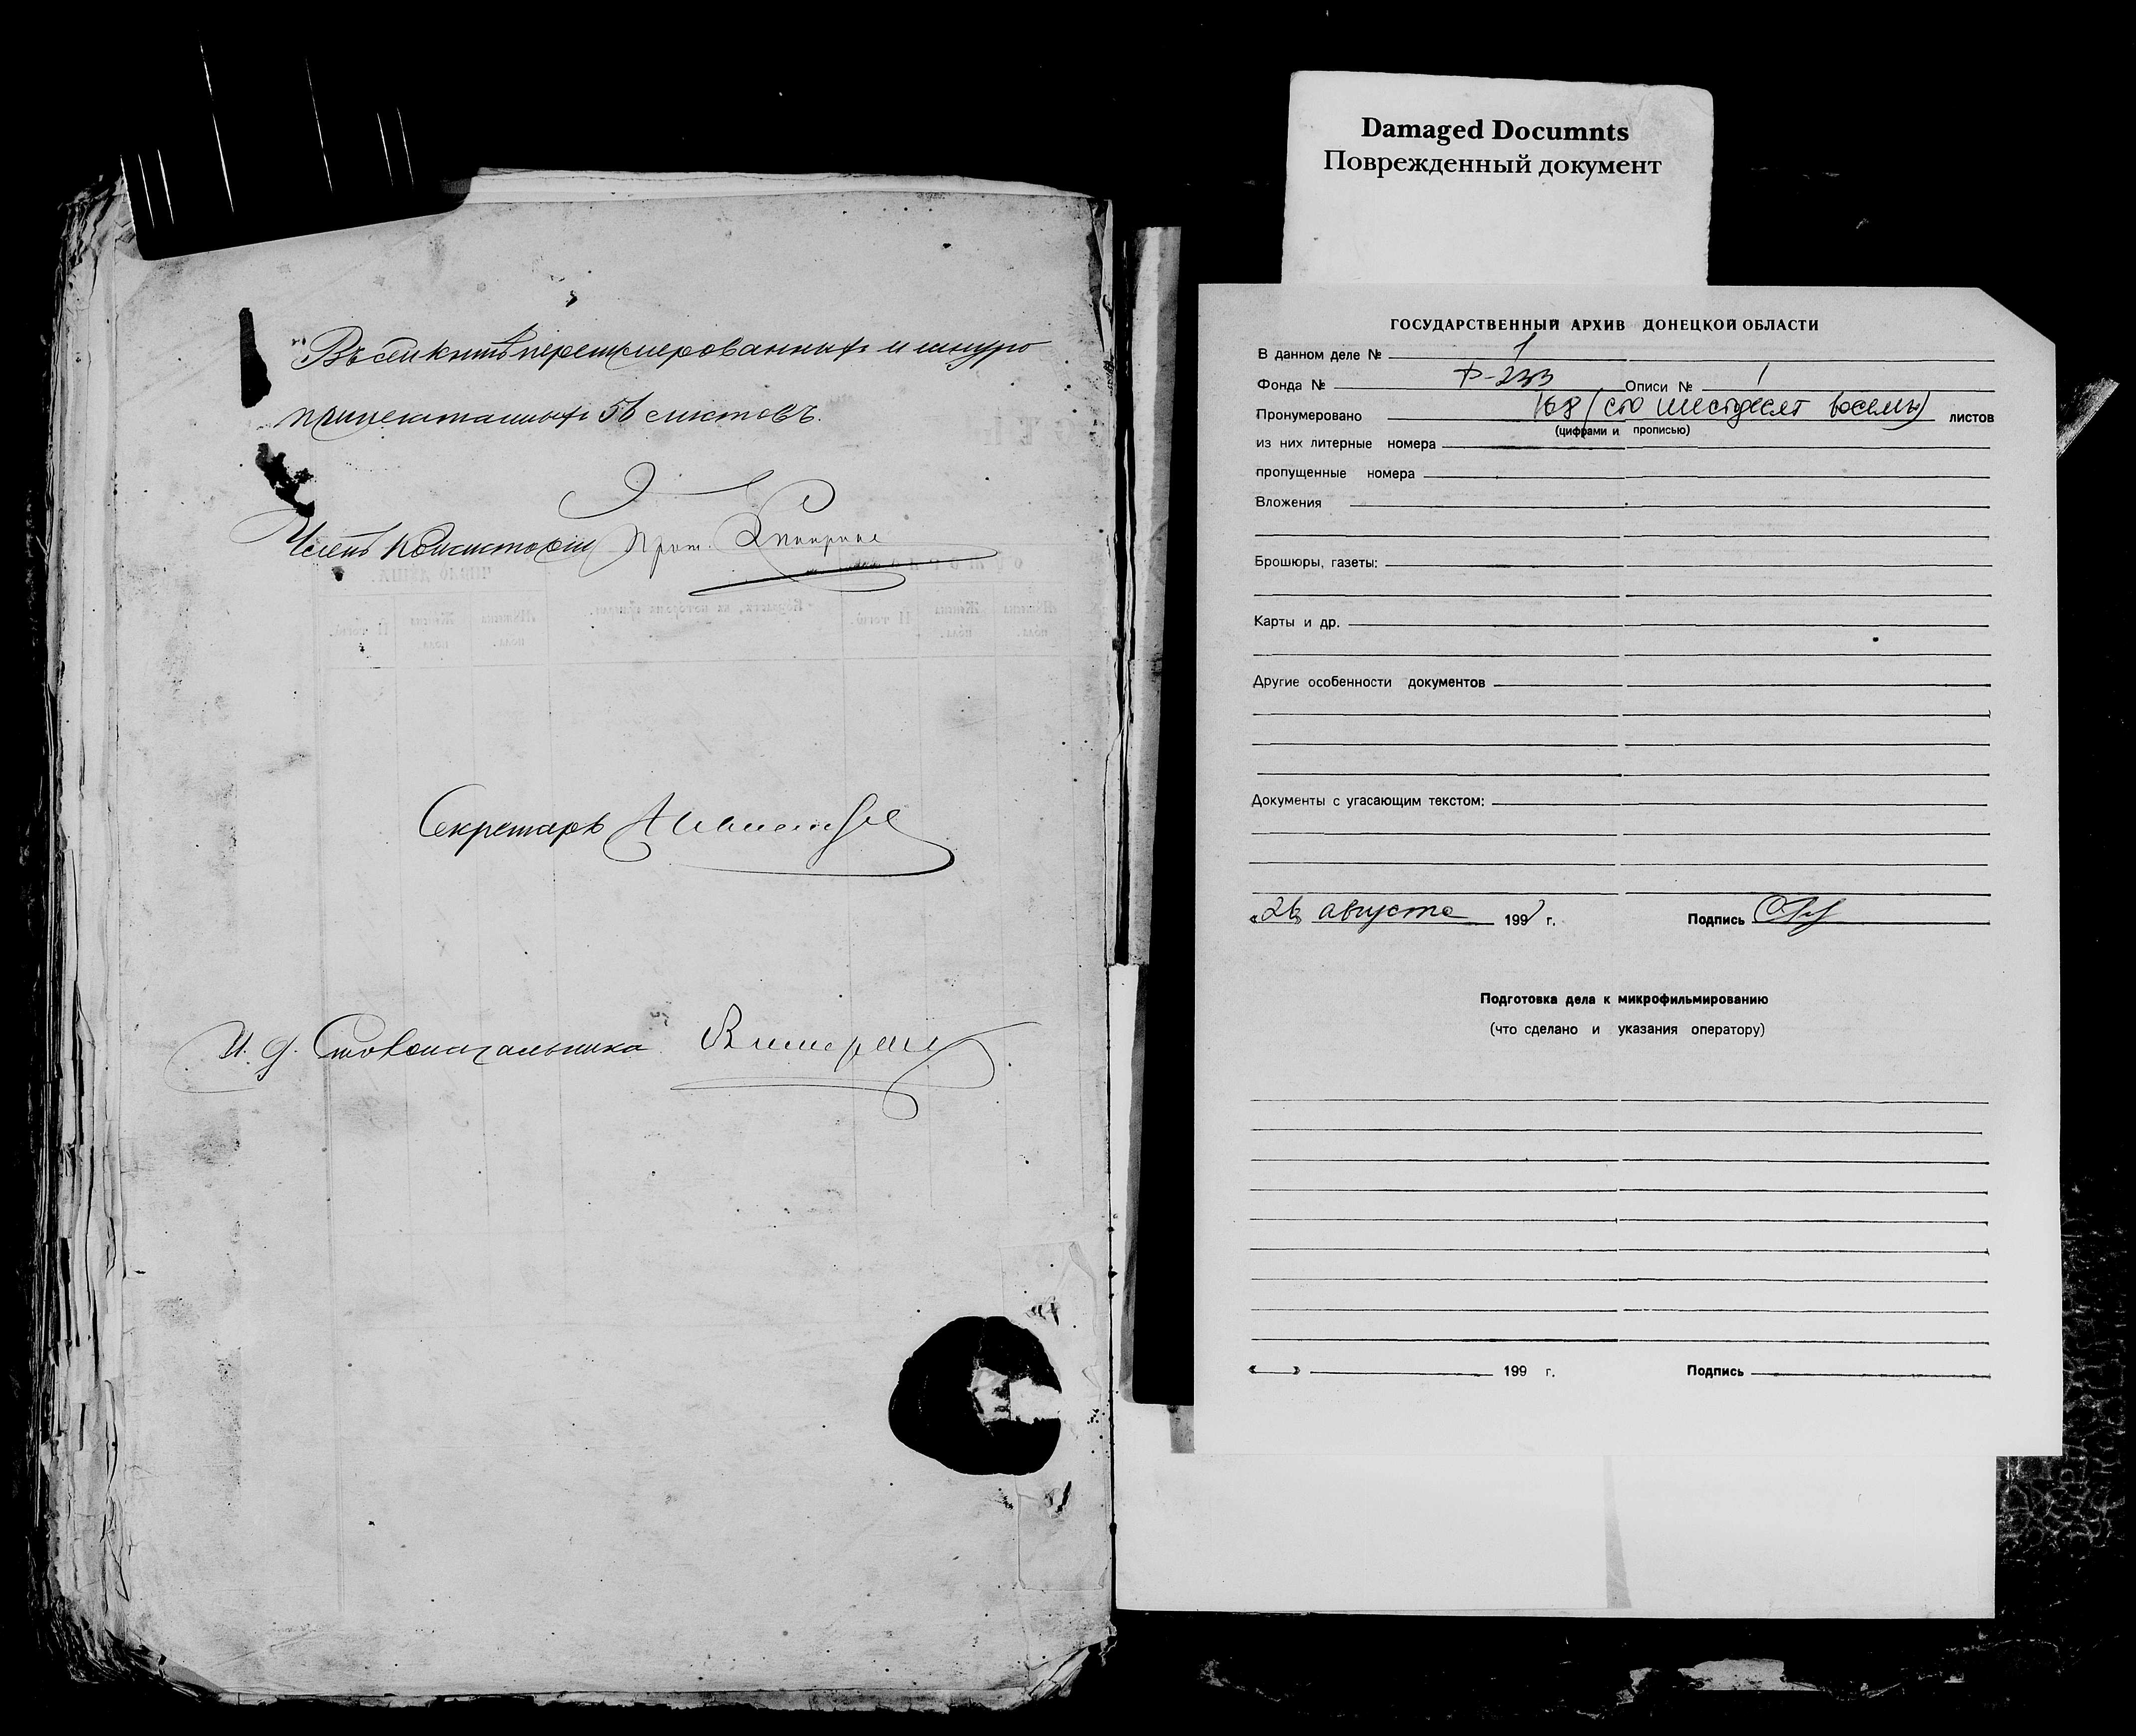 Въ сей книгѣ перенумерованныхъ и шнуро
припечатанныхъ 56 листовъ.
Членъ Консисторіи Прот.
Секретарь
И. д. Столоначальника
Damaged Documnts
Поврежденный документ
ГОСУДАРСТВЕННЫЙ АРХИВ ДОНЕЦКОЙ ОБЛАСТИ
В данном деле № 1
Фонда № Р-233 Описи № 1
Пронумеровано 168 (сто шестдесят восемь) листов
(цифрами и прописью)
из них литерные номера
пропущенные номера
Вложения
Брошюры, газеты:
Карты и др.
Другие особенности документов
Документы с угасающим текстом:
«26» августа 1997 г. Подпись
Подготовка дела к микрофильмированию
(что сделано и указания оператору)
« » 199 г. Подпись